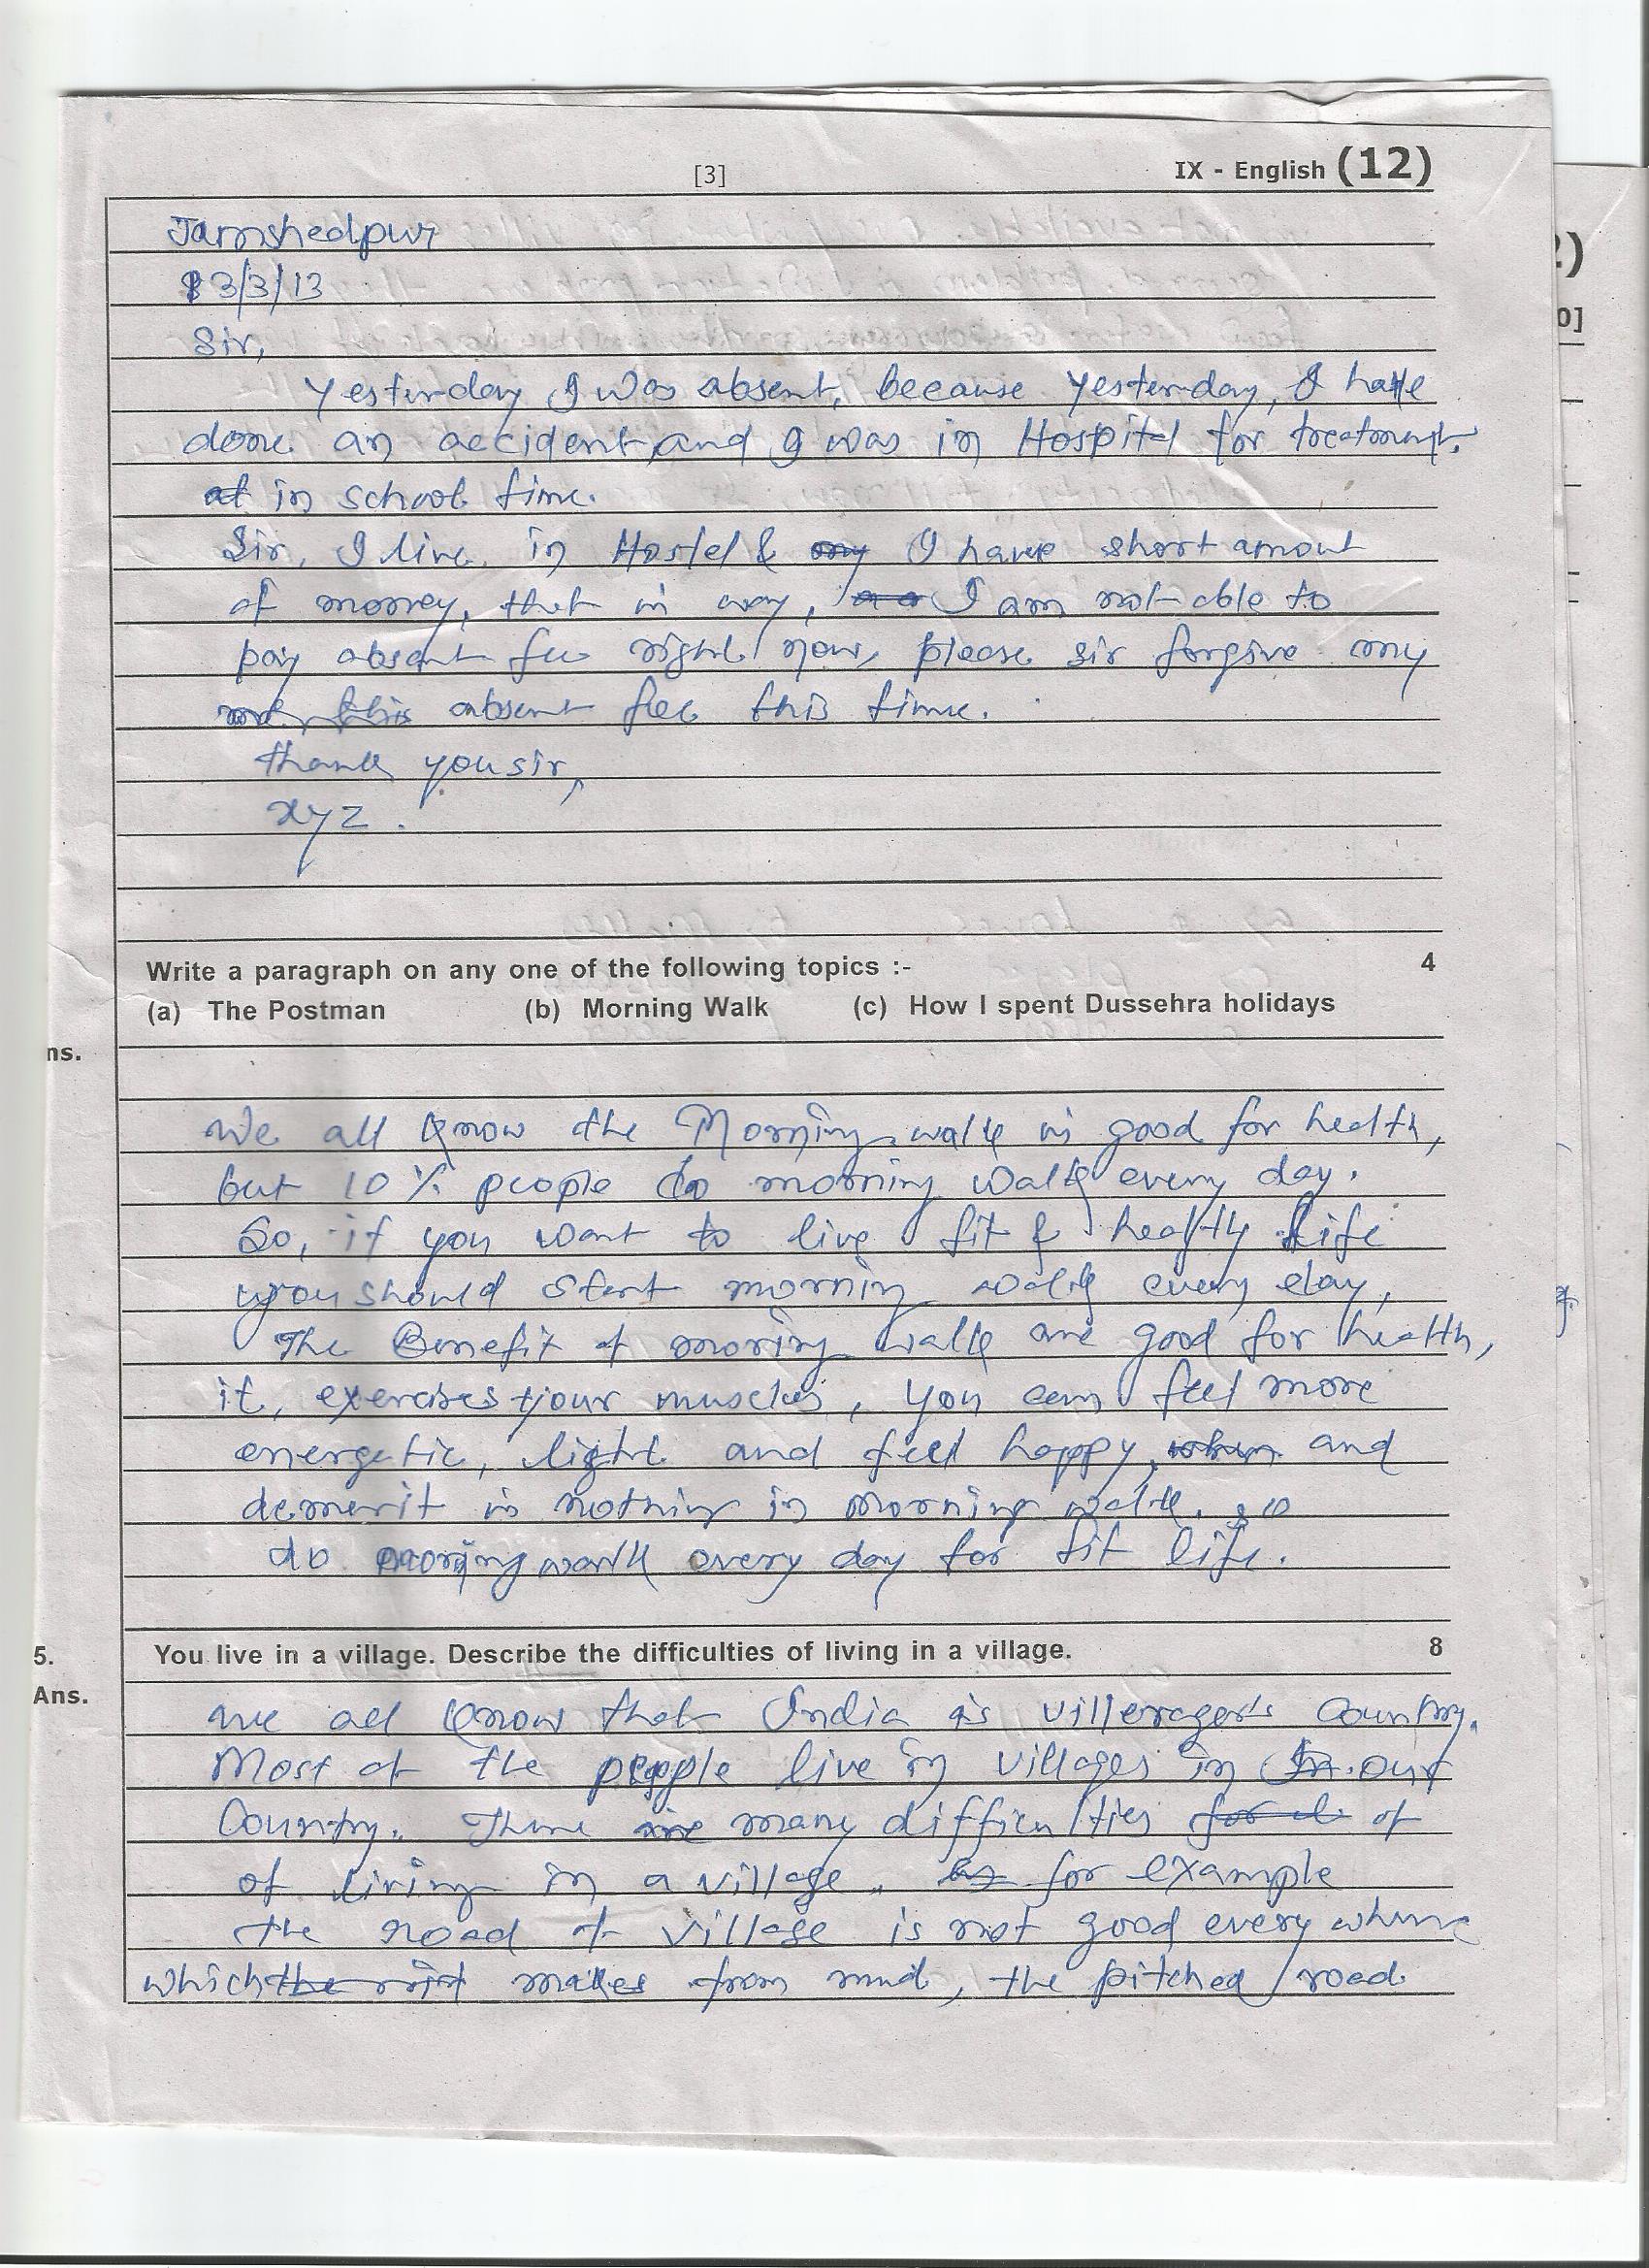 [3]
IX - English (12)
Jamshedpur
3/3/13
Sir,
Yesterday I was absent, because yesterday, I have
done an accident, and I was in Hospitel for treatment.
at in school time.
Sir, I live in Hostel & my I have short amount
of money, thet in way, I am not able to
pay absent fee right now, please sir forgive my
absent fee this time.
thank you sir,
xyz.
Write a paragraph on any one of the following topics :- 4
(a) The Postman (b) Morning Walk (c) How I spent Dussehra holidays
ns.
We all know the Morning walk is good for health,
but 10% people do morning walk every day.
So, if you want to live fit & healty life
you should start morning walk every day,
The Benefit of moring walk are good for health,
it, exercises your muscles, you can feel more
energetic, light and feel happy, when and
demerit is nothing in morning walk. so
do moring walk every day for fit life.
5. You live in a village. Describe the difficulties of living in a village. 8
Ans.
we all know that India is country.
Most of the people live in villages in our
Country. There are many difficulties of
of living in a village. for example
the road of village is not good every where
which makes from mud, the pitched road
2)
0]